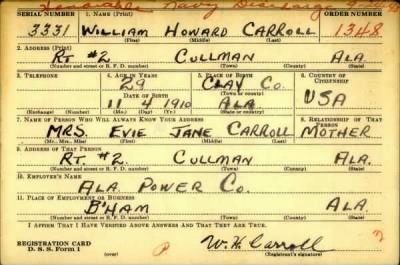 Honorable Navy Discharge
SERIAL NUMBER 1. NAME (Print) ORDER NUMBER
3331 WILLIAM HOWARD CARROLL 1348
(First) (Middle) (Last)
2. ADDRESS (Print)
RT #2 CULLMAN ALA.
(Number and street or R. F. D. number) (Town) (County) (State)
3. TELEPHONE 4. AGE IN YEARS 5. PLACE OF BIRTH 6. COUNTRY OF CITIZENSHIP
29 CLAY CO.
DATE OF BIRTH (Town or county)
11 4 1910 ALA USA
(Exchange) (Number) (Mo.) (Day) (Yr.) (State or country)
7. NAME OF PERSON WHO WILL ALWAYS KNOW YOUR ADDRESS 8. RELATIONSHIP OF THAT PERSON
MRS. EVIE JANE CARROLL MOTHER
(Mr., Mrs., Miss) (First) (Middle) (Last)
9. ADDRESS OF THAT PERSON
RT. #2. CULLMAN ALA.
(Number and street or R. F. D. number) (Town) (County) (State)
10. EMPLOYER'S NAME
ALA. POWER CO.
11. PLACE OF EMPLOYMENT OR BUSINESS
B'HAM ALA.
(Number and street or R. F. D. number) (Town) (County) (State)
I AFFIRM THAT I HAVE VERIFIED ABOVE ANSWERS AND THAT THEY ARE TRUE.
REGISTRATION CARD
D. S. S. Form 1 (over) W. H. Carroll
(Registrant's signature)